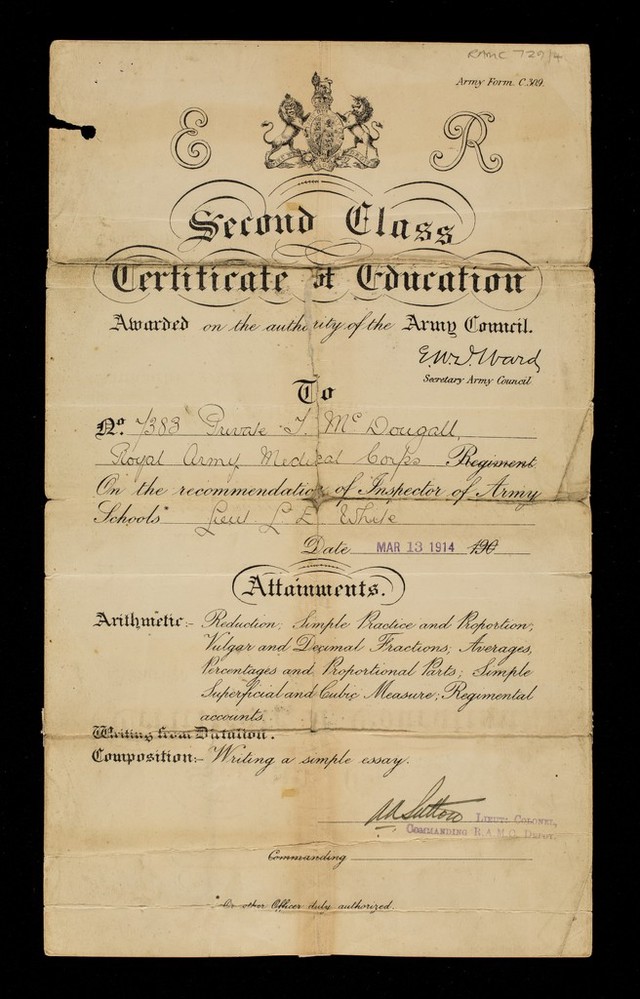 RAMC 729/4
Army Form C.309.
E R
Second Class
Certificate of Education
Awarded on the authority of the Army Council.
E.W.D. Ward
Secretary Army Council
To
No. 7383 Private T. McDougall,
Royal Army Medical Corps Regiment
On the recommendation of Inspector of Army
Schools* Lieut L. E. White
Date MAR 13 1914 190
Attainments.
Arithmetic:- Reduction; Simple Practice and Proportion;
Vulgar and Decimal Fractions; Averages,
Percentages and Proportional Parts; Simple
Superficial and Cubic Measure; Regimental
accounts.
Writing from Dictation.
Composition:- Writing a simple essay.
Sutton LIEUT: COLONEL,
COMMANDING R.A.M.C. DEPOT.
Commanding
*Or other Officer duly authorized.